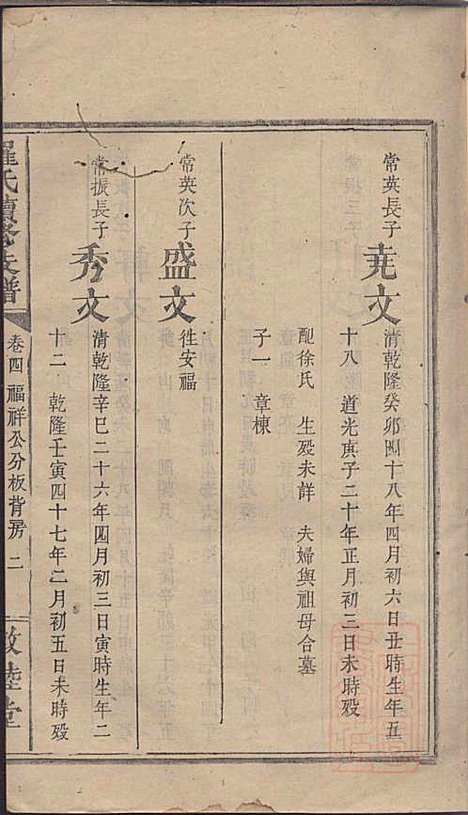 常英長子
堯文
清乾隆癸卯四十八年四月初六日丑時生年五
十八 道光庚子二十年正月初三日未時殁
配徐氏 生殁未詳 夫婦與祖母合墓
子一 章棟
常英次子
盛文
徃安福
常振長子
秀文
清乾隆辛巳二十六年四月初三日寅時生年二
十二 乾隆壬寅四十七年二月初五日未時殁
羅氏續修支譜
卷四 福祥公分板背房 二
敦睦堂